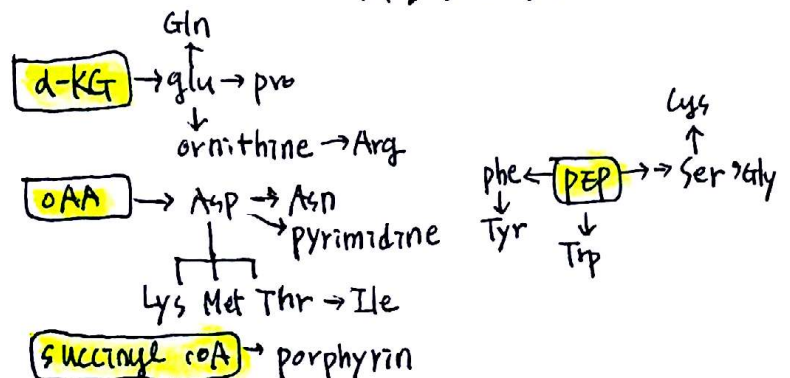 Gln
α-KG → glu → pro
ornithine → Arg
OAA → Asp → Asn
pyrimidine
Lys Met Thr → Ile
succinyl coA → porphyrin
Cys
phe ← PEP →→ Ser, Gly
Tyr
Trp